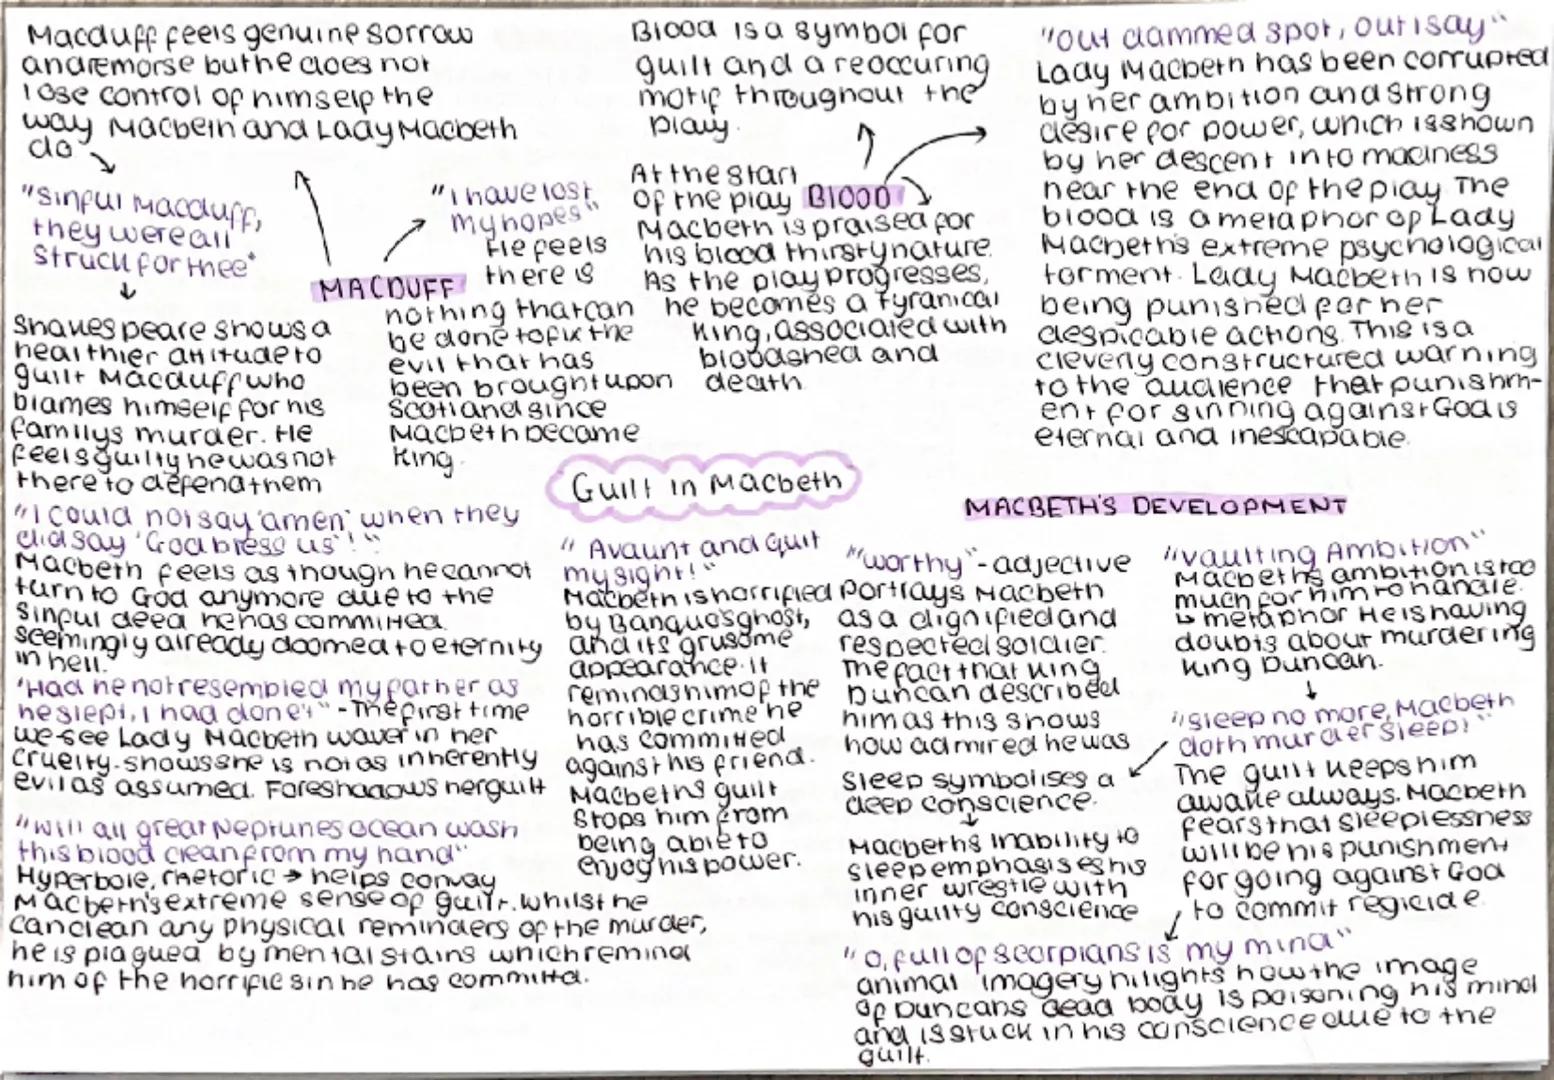 Macduff feels genuine sorrow
and remorse but he does not
lose control of himself the
way Macbeth and Lady Macbeth
do.
"Sinful Macduff,
they were all
struck for thee"
MACDUFF
Shakespeare shows a
healthier attitude to
guilt Macduff who
blames himself for his
familys murder. He
feels guilty he was not
there to defend them
"I have lost
my hopes"
He feels
there is
nothing that can
be done to fix the
evil that has
been brought upon
Scotland since
Macbeth became
King.
Blood is a symbol for
guilt and a reoccuring
motif throughout the
play.
At the start
of the play BLOOD
Macbeth is praised for
his blood thirsty nature.
As the play progresses,
he becomes a tyranical
King, associated with
bloodshed and
death.
"Out dammed spot, out I say"
Lady Macbeth has been corrupted
by her ambition and strong
desire for power, which is shown
by her descent into madness
near the end of the play. The
blood is a metaphor of Lady
Macbeth's extreme psychological
torment. Lady Macbeth is now
being punished for her
despicable actions. This is a
cleverly constructured warning
to the audience that punishm-
ent for sinning against God is
eternal and inescapable.
Guilt in Macbeth
"I could not say 'amen' when they
did say 'God bless us'!"
Macbeth feels as though he cannot
turn to God anymore due to the
sinful deed he has committed.
Seemingly already doomed to eternity
in hell.
"Had he not resembled my father as
he slept, I had done't" - The first time
we see Lady Macbeth waver in her
cruelty. Shows she is not as inherently
evil as assumed. Foreshadows her guilt
"Will all great Neptunes ocean wash
this blood clean from my hand"
Hyperbole, rhetoric → helps convay
Macbeth's extreme sense of guilt. Whilst he
can clean any physical reminders of the murder,
he is plagued by mental stains which remind
him of the horrific sin he has committed.
"Avaunt and quit
my sight!"
Macbeth is horrified
by Banquo's ghost,
and its grusome
appearance. It
reminds him of the
horrible crime he
has committed
against his friend.
Macbeths guilt
stops him from
being able to
enjoy his power.
MACBETH'S DEVELOPMENT
"worthy" - adjective
Portrays Macbeth
as a dignified and
respected soldier.
The fact that King
Duncan described
him as this shows
how admired he was
Sleep symbolises a
deep conscience.
Macbeths inability to
sleep emphasises his
inner wrestle with
his guilty conscience
"Vaulting Ambition"
Macbeths ambition is too
much for him to handle.
↳ metaphor He is having
doubts about murdering
King Duncan.
"Sleep no more, Macbeth
doth murder sleep!"
The guilt keeps him
awake always. Macbeth
fears that sleeplessness
will be his punishment
for going against God
to commit regicide.
"O, full of scorpians is my mind"
animal imagery hilights how the image
of Duncans dead body is poisoning his mind
and is stuck in his conscience due to the
guilt.